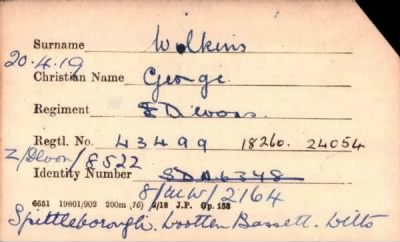 Surname Wilkins
20.4.19
Christian Name George.
Regiment S Devons.
Regtl. No. 43499 18260. 24054
Z/Devon/8522
Identity Number SDA6348
8/MW/2164
6651 19801/902 200m (6) 9/18 J.P. Gp. 155
Spittleborough. Wootten Bassett. Wilts